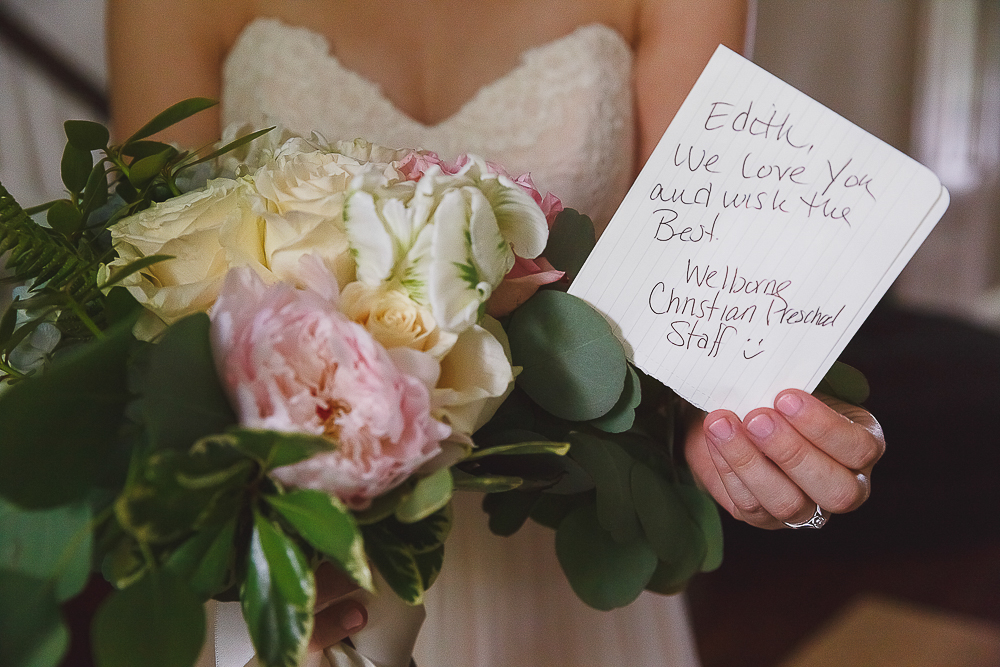 Edith,
We Love You
and wish the
Best.
Welborne
Christian Preschool
Staff :)